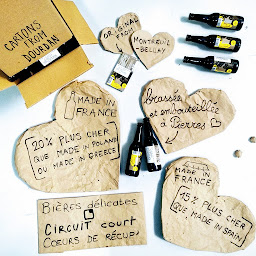 CARTONS
FROM
DOURDAN
ORIGINAL
FROM
MONTREUIL-
BELLAY
MADE IN
FRANCE
20% PLUS CHER
QUE MADE IN POLAND
OU MADE IN GREECE
brassée
et embouteillée
à Pierres
MADE IN
FRANCE
15% PLUS CHER
QUE MADE IN SPAIN
BIÈRES délicates
CIRCUIT court
CŒURS DE RÉCUP!